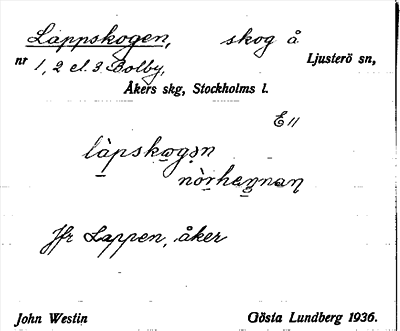 Lappskogen, skog å
nr 1, 2 el. 3 Bolby, Ljusterö sn,
Åkers skg, Stockholms l.
E11
làpskogən
nòrhennan
Jfr Lappen, åker
John Westin Gösta Lundberg 1936.